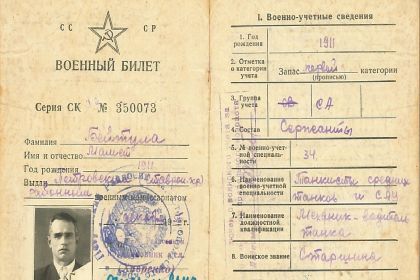 СС СР
ВОЕННЫЙ БИЛЕТ
Серия СК № 350073
Фамилия
Имя и отчество Мамет
Год рождения 1911
районным военным комиссариатом
I. Военно-учетные сведения
1. Год рождения 1911
2. Отметка о категории учета Запас первой категории
(прописью)
3. Группа учета СА
4. Состав Сержанты
5. № военно-учетной специальности 34.
6. Наименование военно-учетной специальности Танкисты средних танков и САУ
7. Наименование должностной квалификации Механик-водитель танка
8. Воинское звание Старшина